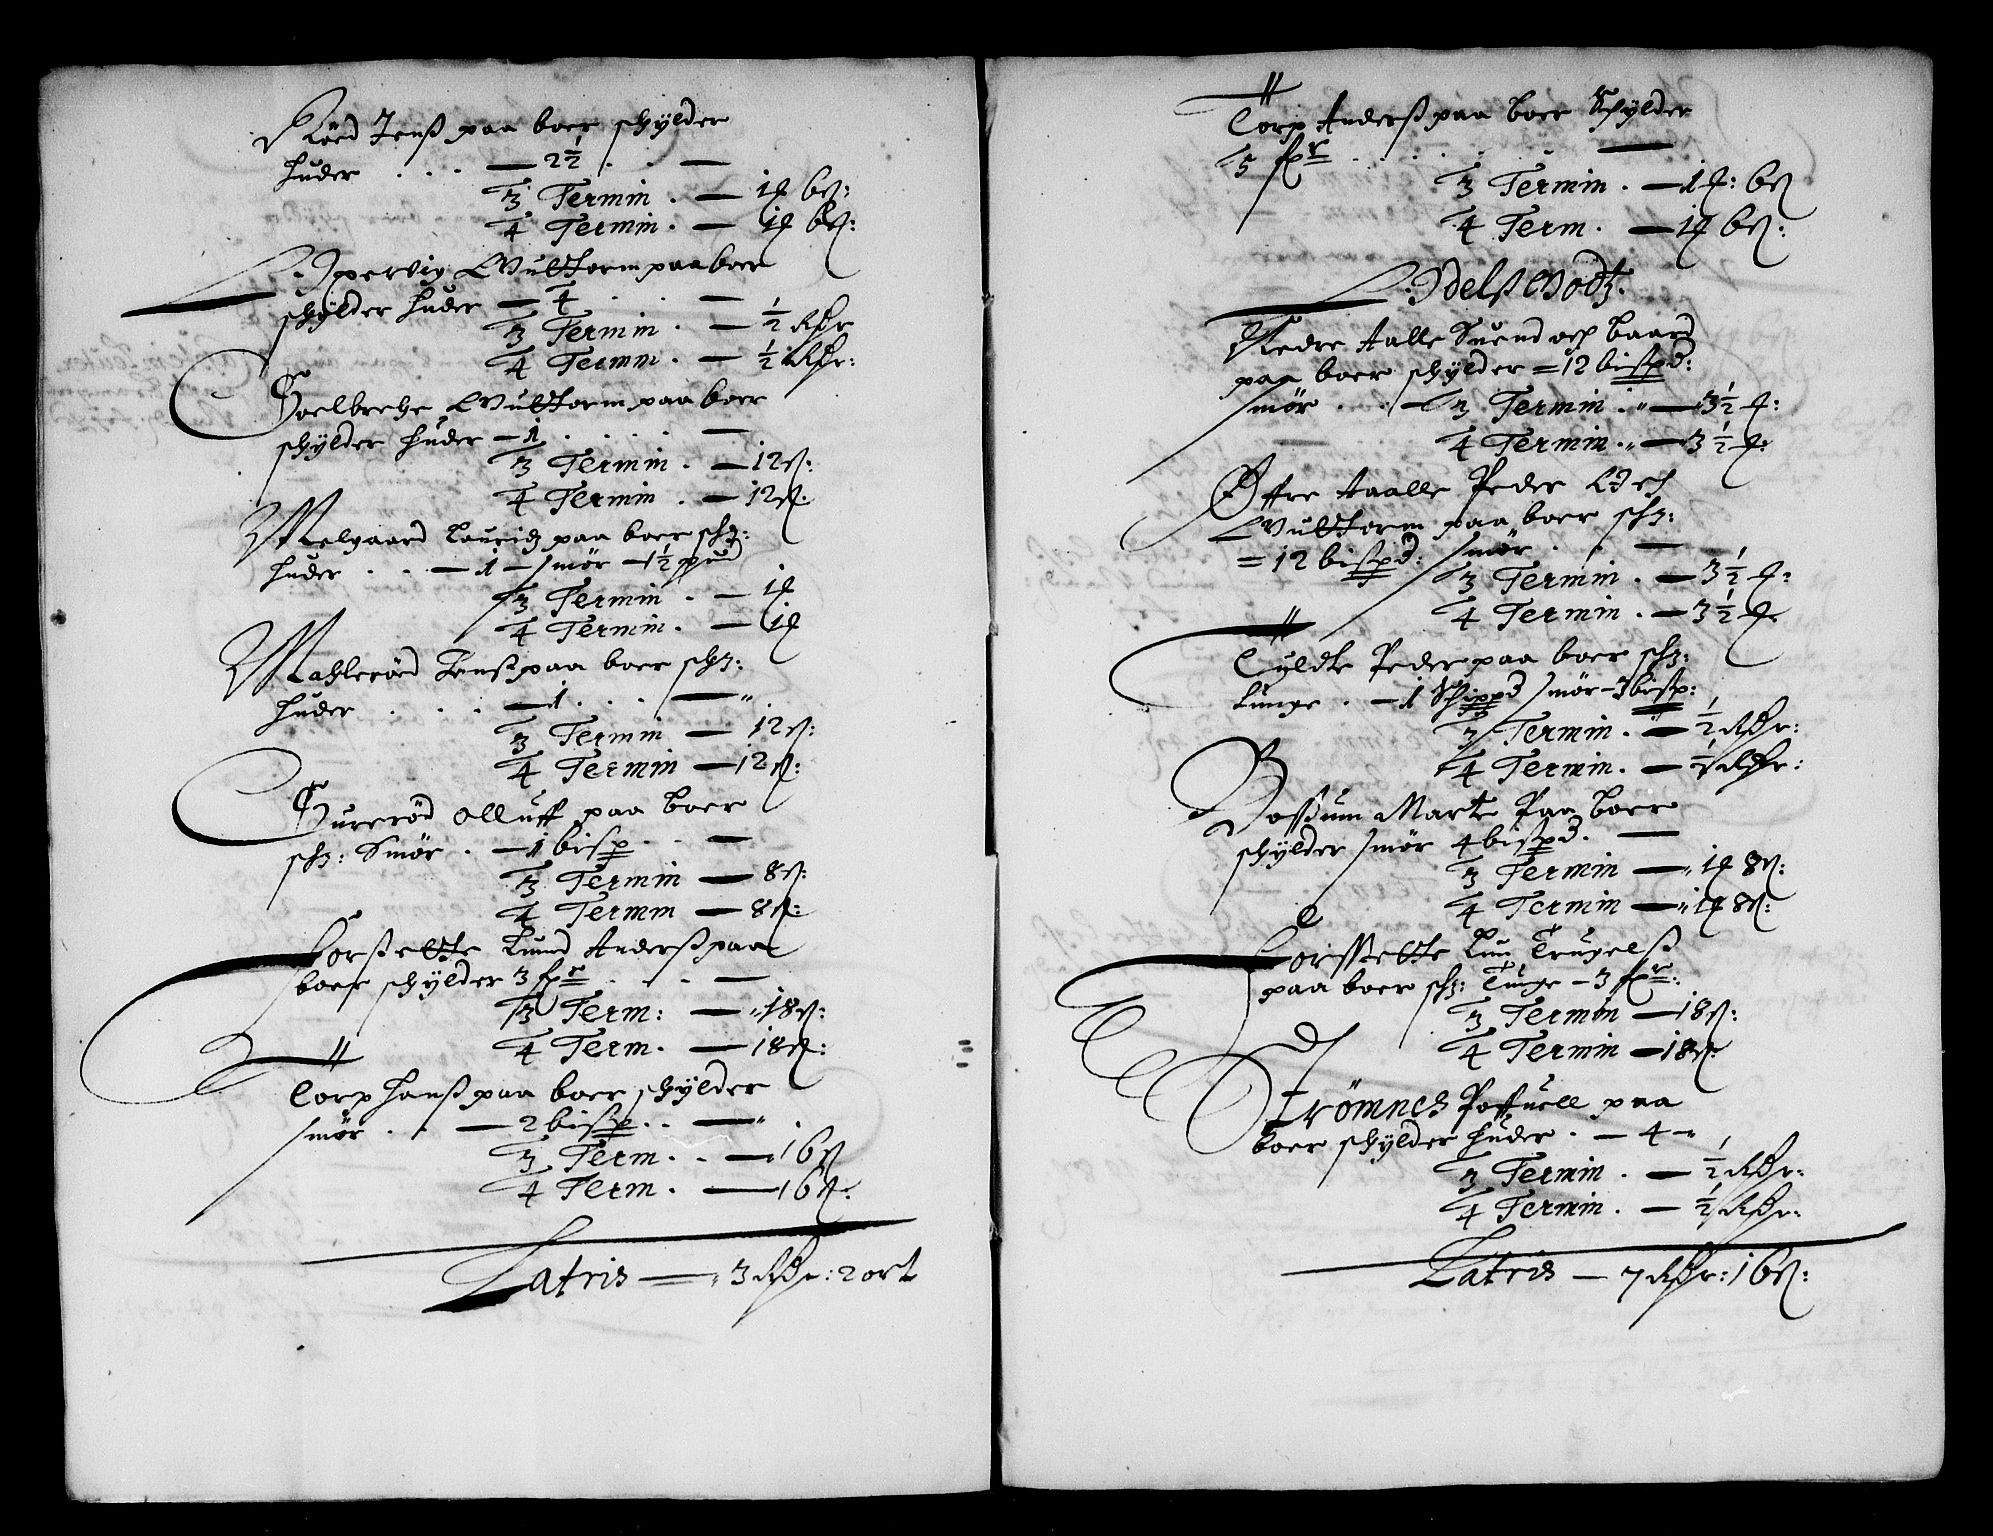 Röed Jenß paa boer schylder
huder . . . — 2½ . . —
3 Termin . — 1 ₰ 6 ß:
4 Termin . — 1 ₰ 6 ß:
Spervig Guttorm paa boer
schylder huder — 4 . . —
3 Termin . — ½ Rdr
4 Termin . — ½ Rdr:
Soelbrche Guttorm paa boer
schylder huder — 1 . . . —
3 Termin . — 12 ß:
4 Termin . — 12 ß:
Melgaard Lauridz paa boer sch:
huder . . — 1 — smör — 1½ pud
3 Termin . — 1 ₰
4 Termin . — 1 ₰
Mahleröed Jenß paa boer sch:
huder . . . — 1 . . . —
3 Termin — 12 ß:
4 Termin — 12 ß:
Surröd Olluff paa boer
sch: Smör . — 1 bisp . . —
3 Termin — 8 ß:
4 Termin — 8 ß:
Forsette Lund Anderß paa
boer schylder 3 fr . . —
3 Term: — 18 ß:
4 Term. — 18 ß:
Torp Hanß paa boer schylder
smör . . — 2 bisp . . —
3 Term . . — 16 ß
4 Term . — 16 ß:
Latris — 3 Rdr: 2 ort
Torp Anderß paa boer Schylder
5 fr . . . —
3 Termin . — 1 ₰: 6 ß
4 Term . — 1 ₰ 6 ß:
Adelß Godtz.
Nedre Aalle Suend och Baard
paa boer schylder = 12 bispd:
smör . . — 3 Termin . — 3½ ₰:
4 Termin . — 3½ ₰:
Öffre Aaalle Peder och
Guttorm paa boer sch:
= 12 bispd: smör . . —
3 Termin . — 3½ ₰:
4 Termin . — 3½ ₰:
Tuldte Peder paa boer sch:
Tunge . — 1 Schippd smör — 3 bisp:
3 Termin . — ½ Rdr:
4 Termin . — ½ Rdr:
Bossum Marte Paa boer
schylder smör 4 bispd . —
3 Termin — 1 ₰ 8 ß:
4 Termin — 1 ₰ 8 ß:
Forssette Lun Trugelß
paa boer sch: Tunge — 3 fr:
3 Termin — 18 ß:
4 Termin — 18 ß:
Strömnes Possuell paa
boer schylder huder . — 4 —
3 Termin . — ½ Rdr:
4 Termin . — ½ Rdr:
Latris — 7 Rdr: 16 ß: